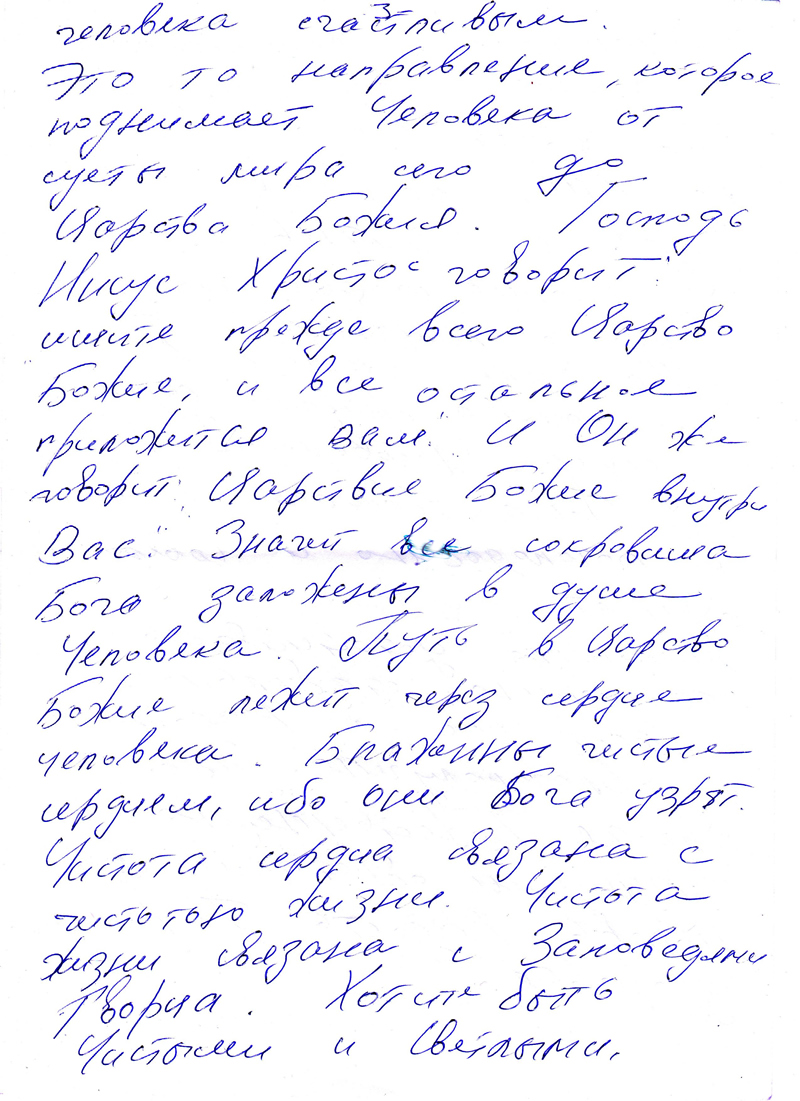 3
человека счастливым.
Это то направление, которое
поднимает Человека от
суеты мира сего до
Царства Божия. Господь
Иисус Христос говорит:
ищите прежде всего Царство
Божие, и все остальное
приложится вам". И Он же
говорит: „Царствие Божие внутри
Вас". Значит все сокровища
Бога заложены в душе
Человека. Путь в Царство
Божие лежит через сердце
человека. Блаженны чистые
сердцем, ибо они Бога узрят.
Чистота сердца связана с
чистотою жизни. Чистота
жизни связана с Заповедями
Творца. Хотите быть
Чистыми и Светлыми,